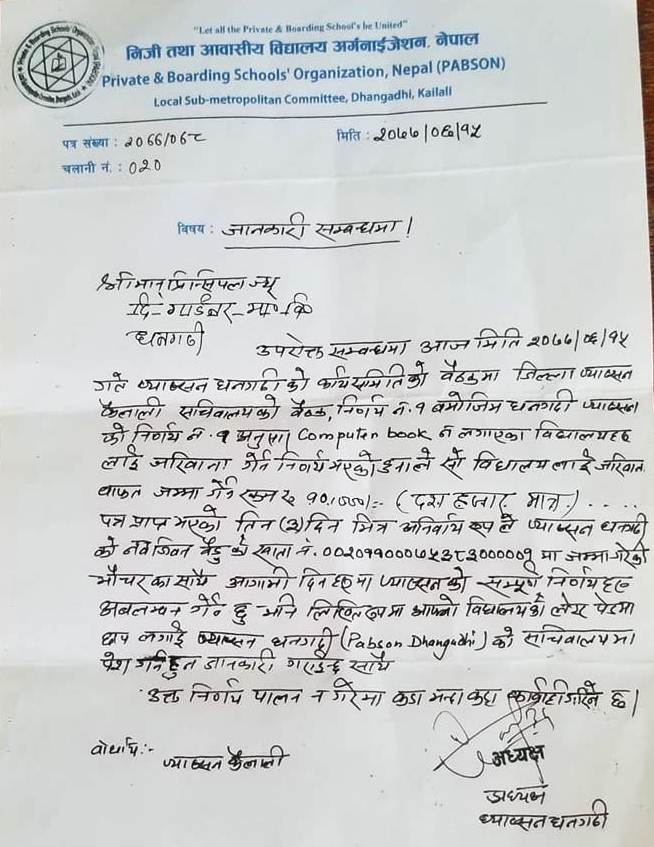 "Let all the Private & Boarding School's be United"
निजी तथा आवासीय विद्यालय अर्गनाईजेशन, नेपाल
Private & Boarding Schools' Organization, Nepal (PABSON)
Local Sub-metropolitan Committee, Dhangadhi, Kailali
पत्र संख्या : २०७७/०७८
मिति : २०७७/०६/१५
चलानी नं. : ०२०
विषय : जानकारी सम्बन्धमा !
श्रीमान् प्रिन्सिपल ज्यू
दि- गार्डनर- मा० वि
धनगढी
उपरोक्त सम्बन्धमा आज मिति २०७७/०६/१५
गते प्याब्सन धनगढी को कार्यसमितिको बैठकमा जिल्ला प्याब्सन
कैलाली सचिवालयको बैठक, निर्णय नं. १ बमोजिम धनगढी प्याब्सन
को निर्णय नं. १ अनुसार Computer book न लगाएका विद्यालयहरु
लाई जरिवाना गर्ने निर्णय भएको हुनाले सो विद्यालय लाई जरिवाना
वाफत जम्मा गर्ने रकम रु १०,०००/:- (दश हजार मात्र) . . . . .
पत्र प्राप्त भएको तिन (३) दिन भित्र अनिवार्य रुप ले प्याब्सन धनगढी
को खाता नं. मा जम्मा गरेको
भौचर का साथै आगामी दिनहरुमा प्याब्सन को सम्पूर्ण निर्णयहरु
अबलम्बन गर्ने छु भनि लिखित रुपमा आफ्नो विद्यालयको लेटर पेडमा
छाप लगाई प्याब्सन धनगढी (Pabson Dhangadhi) को सचिवालयमा
पेश गर्नुहुन जानकारी गराईन्छ साथै
उक्त निर्णय पालन न गरेमा कडा भन्दा कडा कार्वाही गरिने छ।
बोधार्थ:-
प्याब्सन कैलाली
अध्यक्ष
अध्यक्ष
प्याब्सन धनगढी